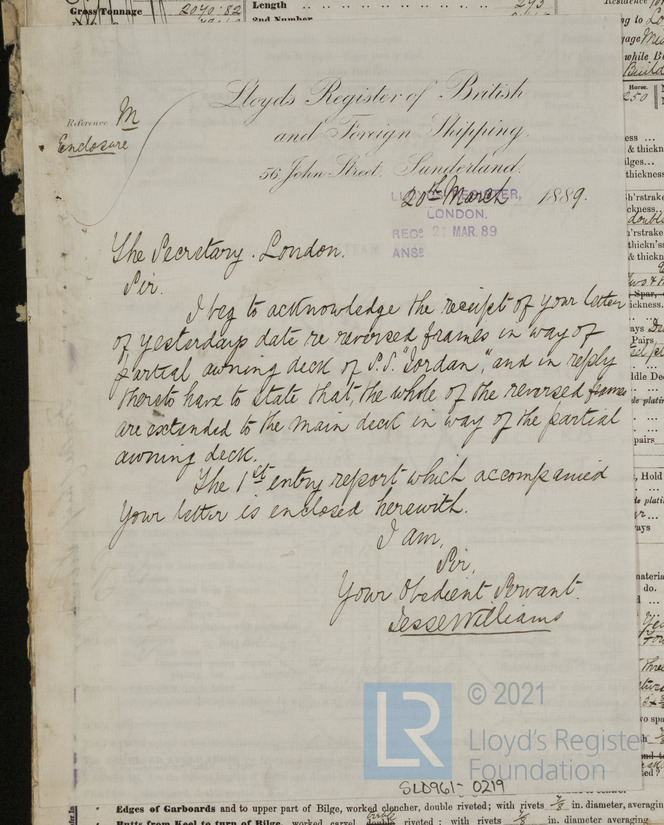 Gross Tonnage 2040.82 Length
2nd Number
Reference M
Enclosure
Lloyds Register of British
and Foreign Shipping.
56 John Street, Sunderland.
20th March 1889.
LONDON.
RECD 21 MAR. 89
ANSD
The Secretary. London.
Sir.
I beg to acknowledge the receipt of your letter
of yesterdays date re reversed frames in way of
partial awning deck of S.S. "Jordan," and in reply
thereto have to state that, the whole of the reversed frames
are extended to the main deck in way of the partial
awning deck.
The 1st entry report which accompanied
your letter is enclosed herewith.
I am,
Sir,
Your Obedient Servant.
Jesse Williams
LR
© 2021
Lloyd's Register
Foundation
SLD961-0219
Edges of Garboards and to upper part of Bilge, worked clencher, double riveted; with rivets 7/8 in. diameter, averaging
Butts from Keel to turn of Bilge, worked carvel, double riveted; with rivets 7/8 in. diameter averaging